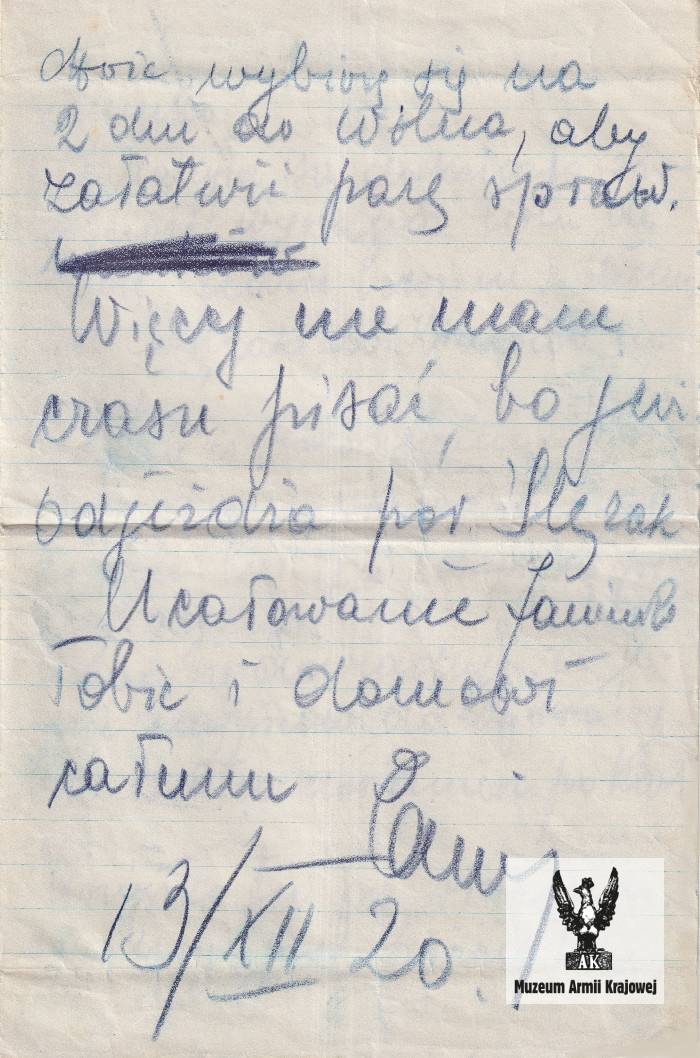 wybiorę się na
2 dni do Wilna, aby
załatwić parę spraw.
Więcej nie mam
czasu pisać, bo już
odjeżdża por. Ślęzak
Ucałowanie Janinko
Tobie i domowi
całemu
13/XII 20.
AK
Muzeum Armii Krajowej